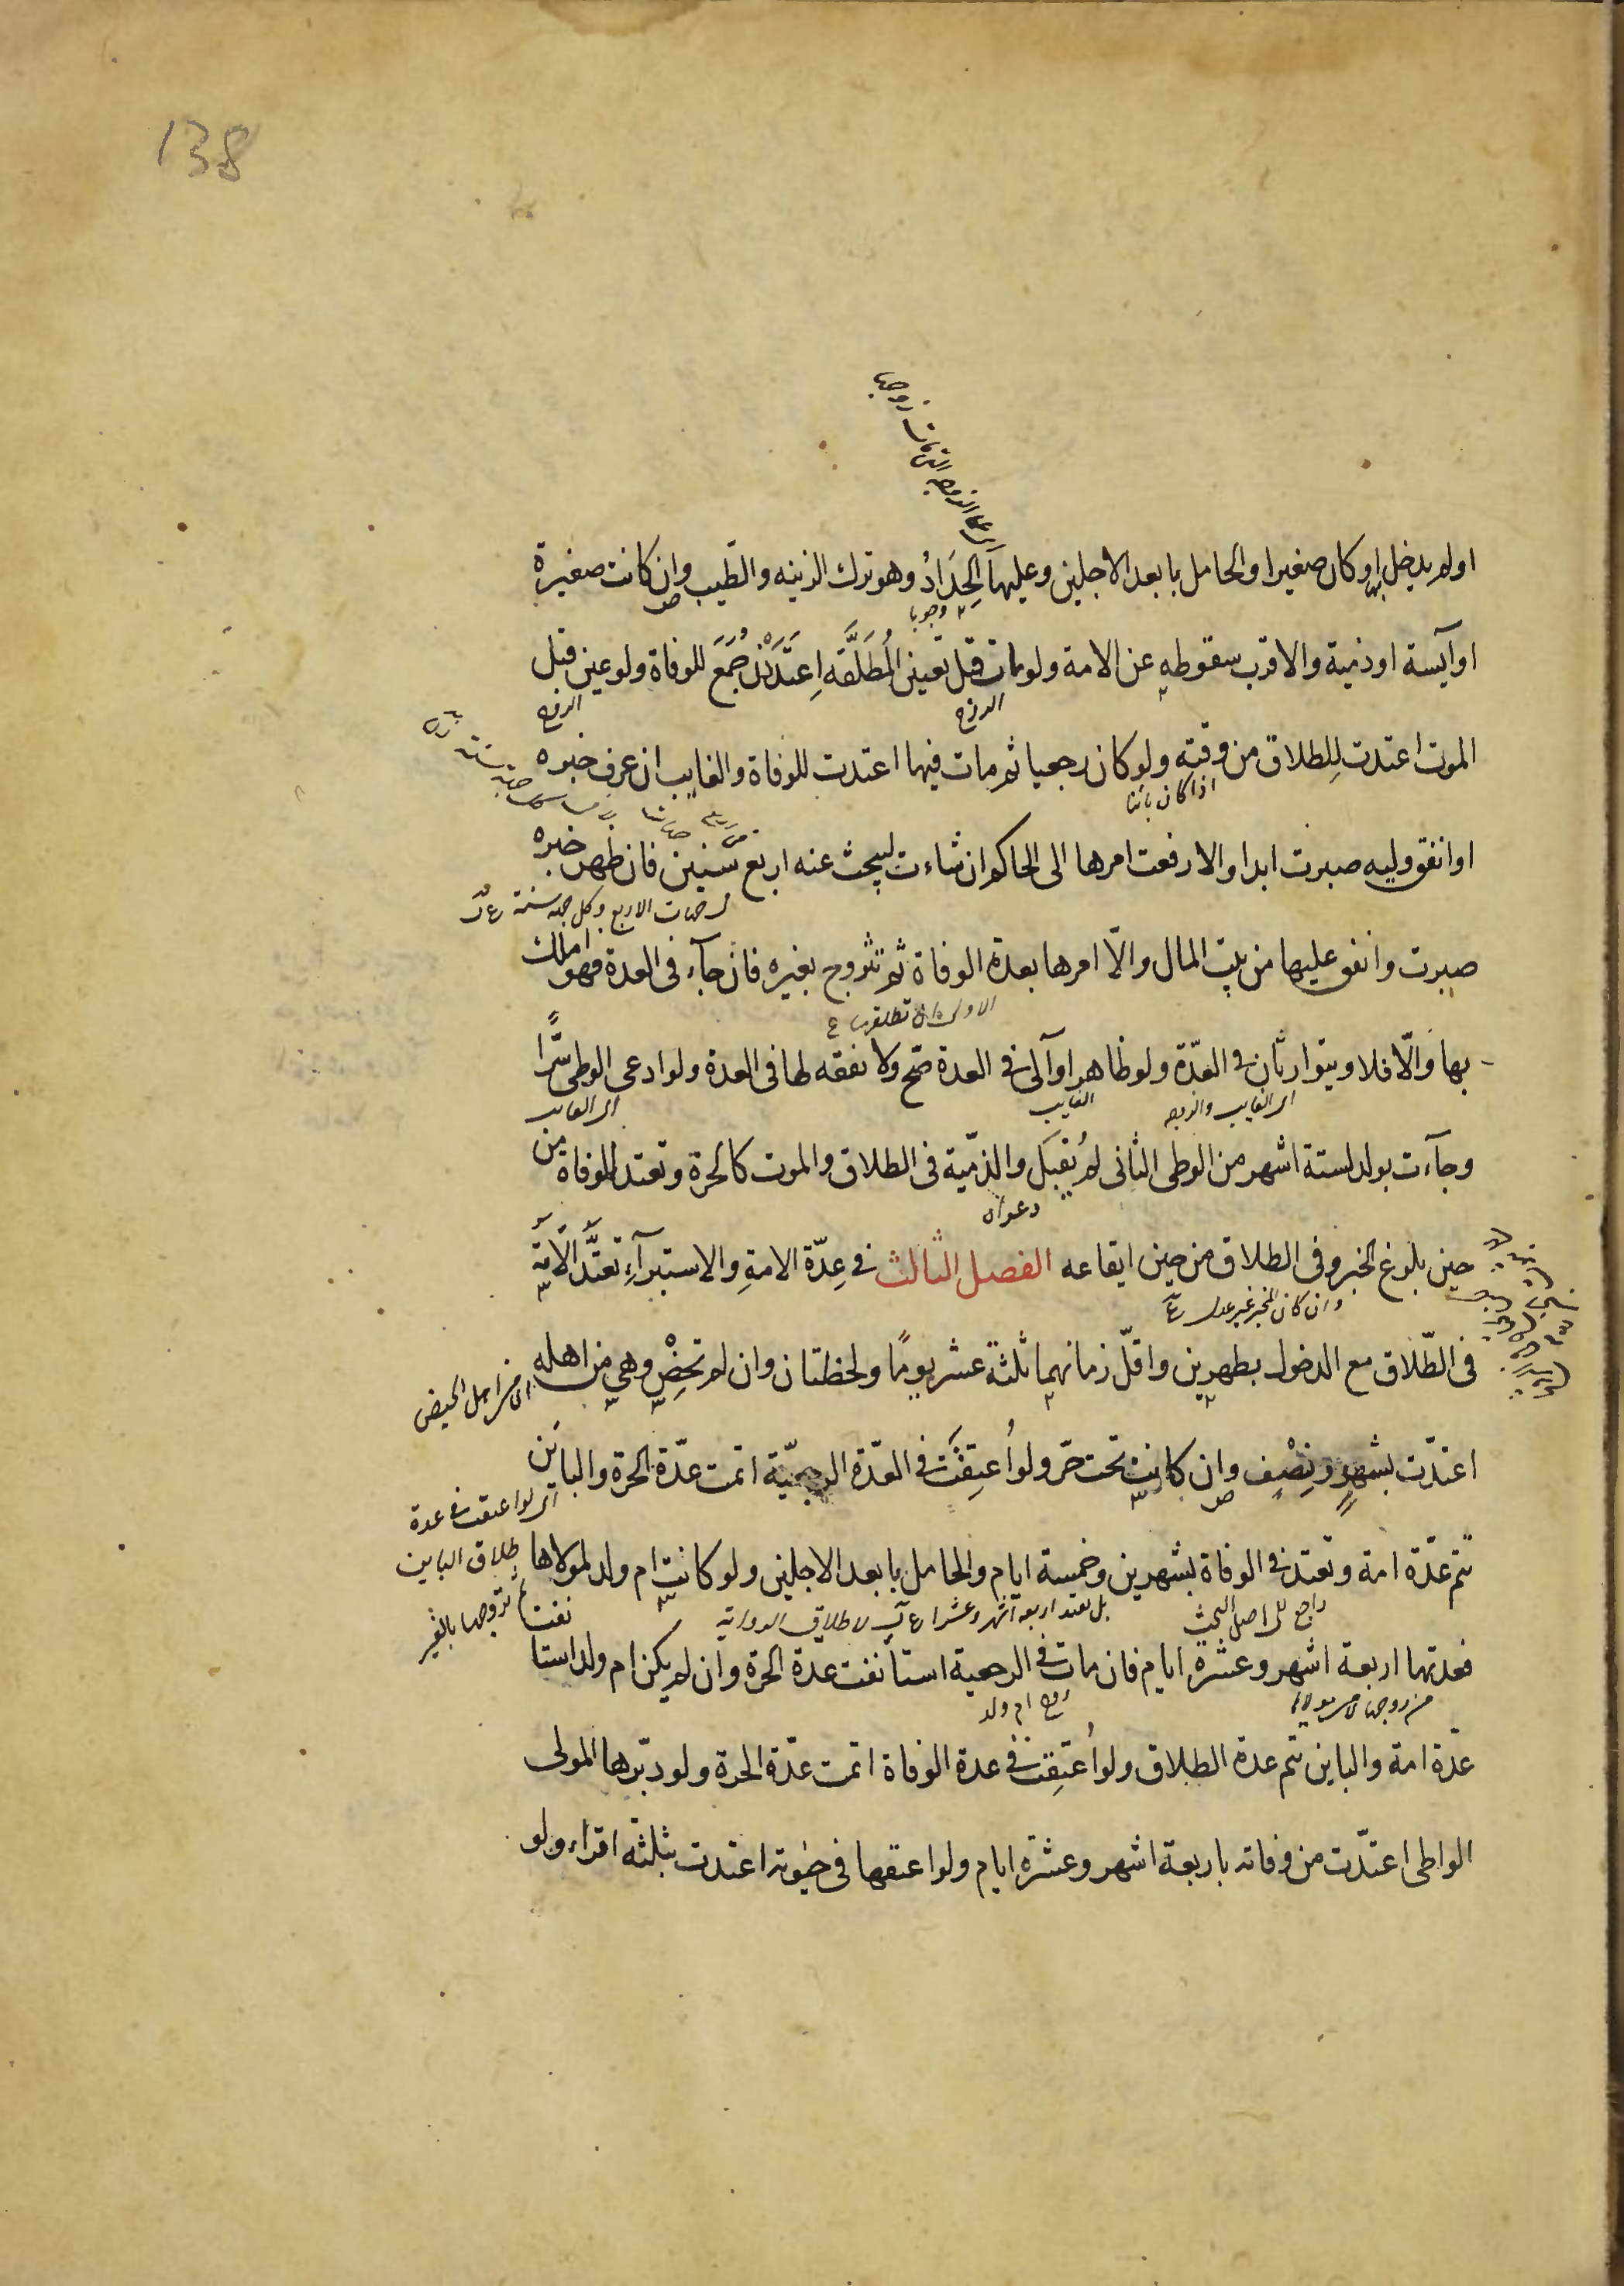 138
او لم يدخل او كان صغيرا والحامل بابعد الاجلين وعليها الحِدَادُ وهو ترك الزينه والطّيب وان كانت صغيرة
وجوبا
او آيسة او ذمية والاقرب سقوطه عن الامة ولو مات قبل تعيين المُطَلَّقَه اِعتَدَدْنَ جُمَعَ للوفاة ولو عين قبل
الزوج
الزوج
الموت اعتدت لِلطلاق من وقته ولو كان رجعيا ثم مات فيها اعتدت للوفاة والغايب ان عرف خبره
اذا كان باينا
او انفق وليه صبرت ابدا والا رفعت امرها الى الحاكم ان شاءت ليبحث عنه اربع سنين فان ظهر خبره
الاربع وكل جهة سنة
صبرت وانفق عليها من بيت المال والّا امرها بعدة الوفاة ثم تتزوج بغيره فان جآء فى العدة فهو املك
بها والّا فلا ويتوارثان فى العدّة ولو ظاهر او آلى فى العدة صَحّ ولا نفقه لها فى العدة ولو ادعى الوطى سِّرًا
اى الغايب والزوجه
الغايب
اى الغايب
وجآءت بولد لستة اشهر من الوطى الثانى لم يُقبَل والذمّية فى الطلاق والموت كالحرة وتعتد للوفاة من
دعواه
حين بلوغ الخبر وفى الطلاق من حين ايقاعه الفصل الثالث فى عِدّة الامةِ والاستبرآءِ تعتَدُّ الاَمَة
وان كان المخبر غير عدل
فى الطّلاق مع الدخول بطهرين واقلّ زمانهما ثلثة عشر يومًا ولحظتان وان لم تحِضْ وهى من اهله
اى من اهل الحيض
اعتدّت بشهرٍ ونِصْفٍ وان كانت تحت حرّ ولو اُعتِقَت فى العدّة الرجعيّة اتمت عدّة الحرة والباين
اى لو اعتقت فى عدة
طلاق الباين
تتم عدّة امة وتعتد فى الوفاة بشهرين وخمسة ايام والحامل بابعد الاجلين ولو كانت ام ولد لمولاها
راجع الى اصل البحث
بل تعتد اربعة اشهر وعشرا
فعدتها اربعة اشهر وعشرة ايام فان مات فى الرجعية استأنفت عدة الحرة وان لم يكن ام ولد استا
نفت
زوج ام ولد
عدّة امة والباين تتم عدة الطلاق ولو اُعتِقت فى عدة الوفاة اتمت عدّة الحرة ولو دبّرها المولى
الواطى اعتدّت من وفاته باربعة اشهر وعشرة ايام ولو اعتقها فى حيٰوته اعتدت بثلثه اقراء ولو